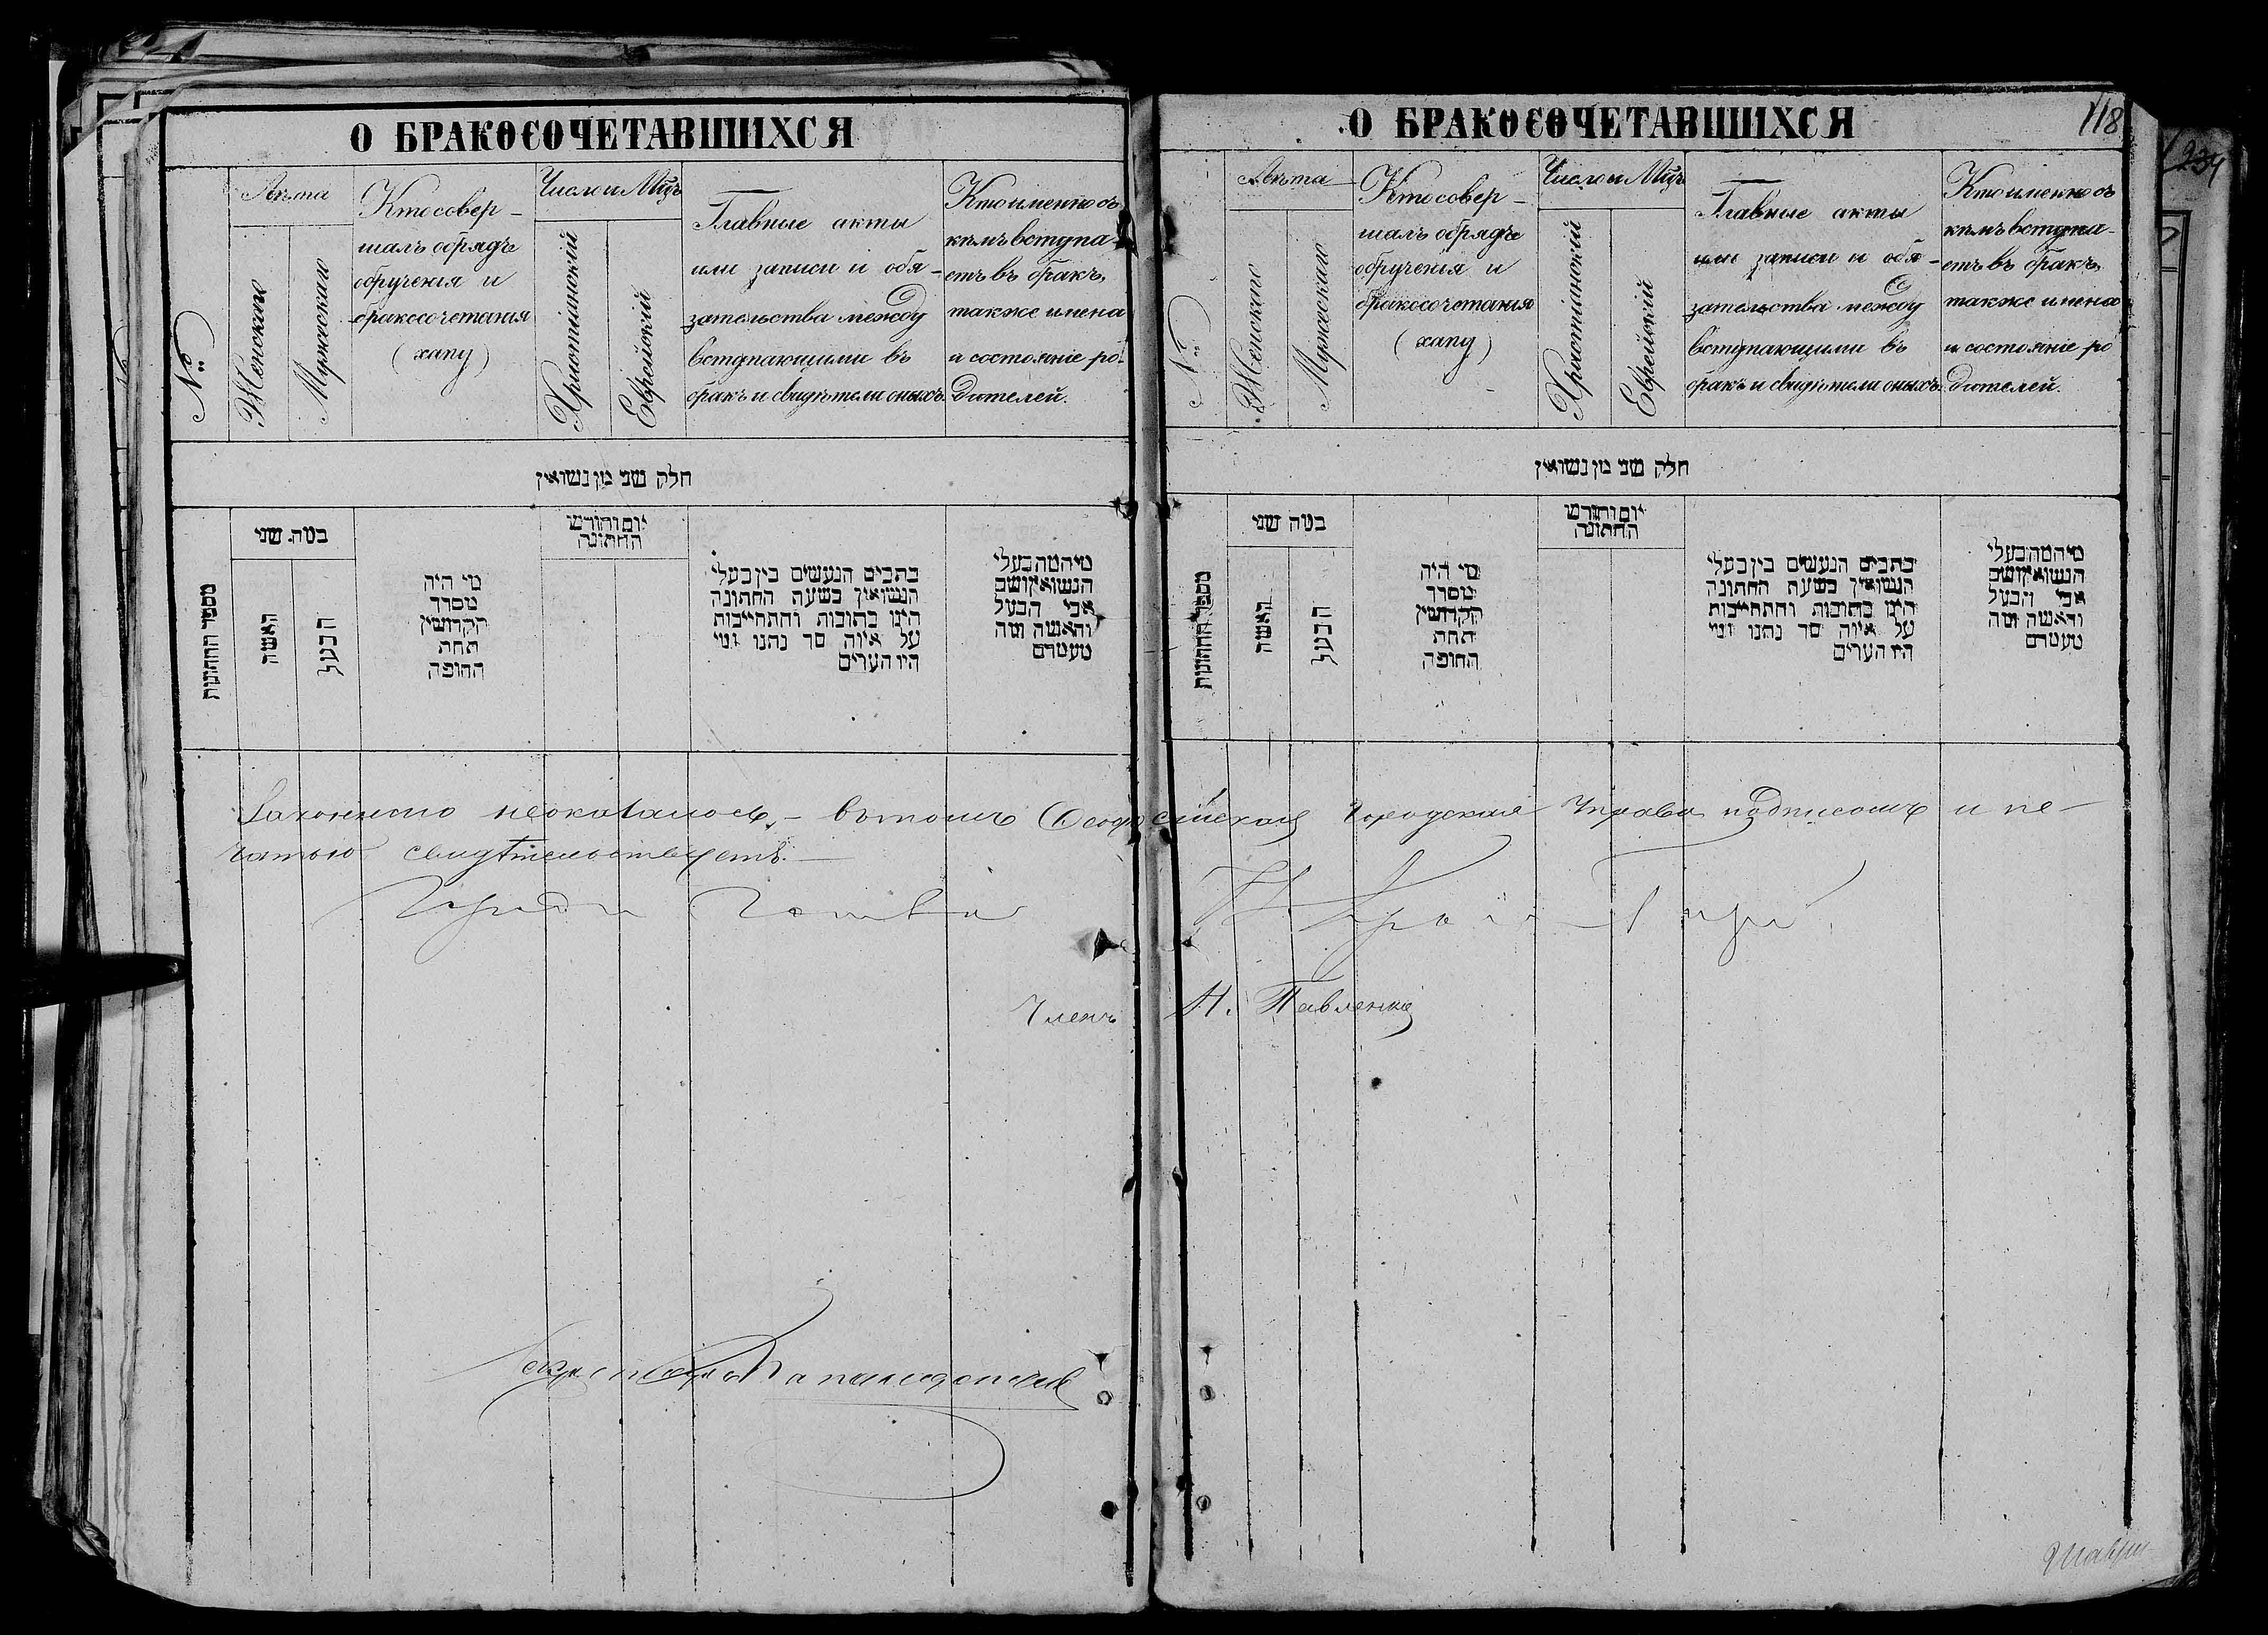 О БРАКОСОЧЕТАВШИХСЯ
№
Лѣта
Женскаго
Мужескаго
Кто совер-
шалъ обрядъ
обрученія и
бракосочетанія
(хапу)
Число и Мѣцъ
Христіанскій
Еврейскій
Главные акты
или записи и обя-
зательства между
вступающими въ
бракъ и свидѣтели оныхъ.
Кто именно съ
кѣмъ вступа-
етъ въ бракъ,
также имена
и состояніе ро-
дителей.
חלק שני מן נשואין
מספר החתונות
כמה שני
האשה
הבעל
מי היה
מסדר
הקדושין
תחת
החופה
יום וחודש
החתונה
כתבים הנעשים בין בעלי
הנשואין בשעת החתונה
היינו כתובות והתחייבות
על איזה סך נתנו ומי
היו הערים
מי המה בעלי
הנשואין ושם
אבי הבעל
והאשה ומה
מעמדם
Законнаго неоказалось, – въ томъ Ѳеодосійская Городская Управа подписомъ и пе-
чатью свидѣтельствуетъ. –
Членъ Н. Павленко
Секретарь
О БРАКОСОЧЕТАВШИХСЯ
118
№
Лѣта
Женскаго
Мужескаго
Кто совер-
шалъ обрядъ
обрученія и
бракосочетанія
(хапу)
Число и Мѣцъ
Христіанскій
Еврейскій
Главные акты
или записи и обя-
зательства между
вступающими въ
бракъ и свидѣтели оныхъ.
Кто именно съ
кѣмъ вступа-
етъ въ бракъ,
также имена
и состояніе ро
дителей.
חלק שני מן נשואין
מספר החתונות
כמה שני
האשה
הבעל
מי היה
מסדר
הקדושין
תחת
החופה
יום וחודש
החתונה
כתבים הנעשים בין בעלי
הנשואין בשעת החתונה
היינו כתובות והתחייבות
על איזה סך נתנו ומי
היו הערים
מי המה בעלי
הנשואין ושם
אבי הבעל
והאשה ומה
מעמדם